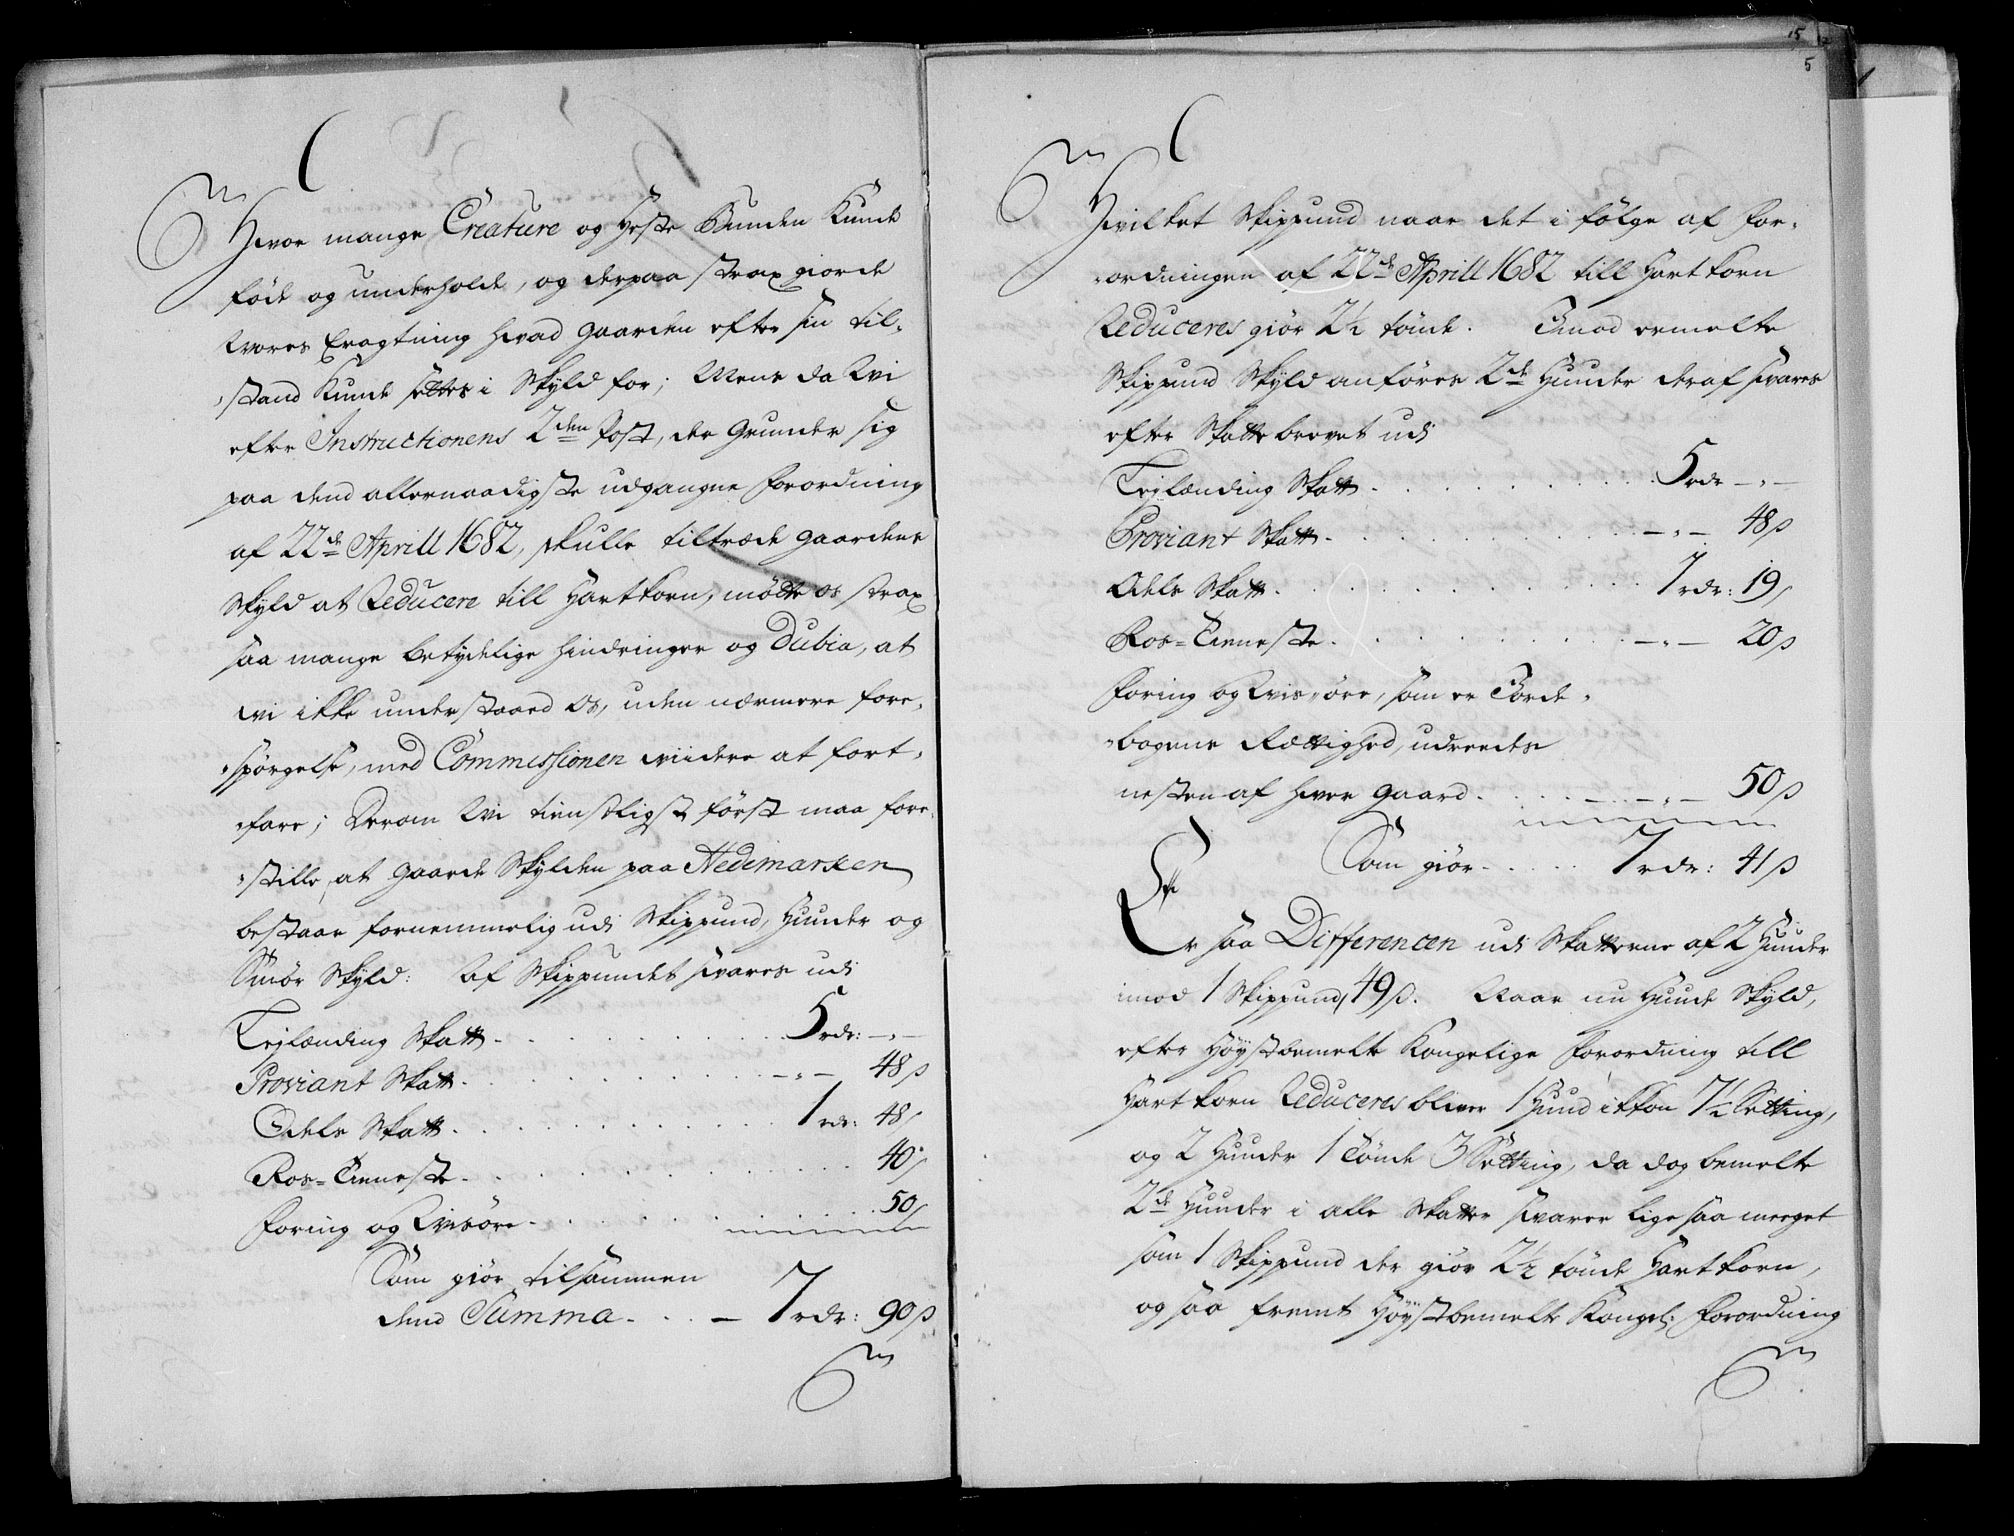 Hvor mange Creature og Heste Bunden Kunde
föde og underholde, og derpaa strax giorde
Wores Eragtning hvad gaarden efter sin til-
stand Kunde settes i Skyld for; Mens da Wi
efter Instructionens 2den Post, der Grunder sig
paa dend allernaadigste udgangne Forordning
af 22de Aprill 1682, skulle tiltræde gaardens
Skyld at Reducere till Hartkorn, mödte os strax
saa mange betydelige hindringer og Dubia, at
wi ikke understaaed os, uden nærmere fore-
spörgelse, med Commissionen wiidere at fort-
fare; Derom Wi tienstligst först maa fore-
stille, at gaarde Skylden paa Hedemarken
bestaar fornemmelig udi Skippund, Hunder og
Smör Skyld: Af Skippundet svares udi
Leylænding Skatt . . . 5 rdr: -"-
Proviant Skatt . . . -"- 48 s
Odels Skatt . . . 1 rdr: 48 s
Ros-Tieneste . . . 40 s
Foring og Wisöre . . . 50 s
Som giör tilsammen
dend Summa . . . 7 rdr: 90 s
15
5
Hvilket Skippund naar det i fölge af For-
ordningen af 22de Aprill 1682 till Hartkorn
Reduceres giör 2½ tönde. Imod ermelte
Skippund Skyld anföres 2de Hunder deraf svares
efter Skattebrevet udi
Leylænding Skatt . . . 5 rdr -"-
Proviant Skatt . . . -"- 48 s
Odels Skatt . . . 1 rdr: 19 s
Ros-Tieneste . . . -"- 20 s
Foring og Wis-öre, som er Jorde-
bogens Rettighed, udreedes
nesten af hver gaard . . . -"- 50 s
Som giör . . . 7 rdr: 41 s
Er saa Differencen udi Skatterne af 2 Hunder
imod 1 Skippund, 49 s. Naar nu Hunde Skyld,
efter Höystbemelte Kongelige Forordning till
Hart korn Reduceres bliver 1 Hund ikkon 7½ Setting,
og 2 Hunder 1 Tönde 3 Setting, da dog bemelte
2de Hunder i alle Skatter svarer lige saa meeget
som 1 Skippund der giör 2½ tönde Hartkorn,
og saa fremt Höystbemelte Kongel: Forordning